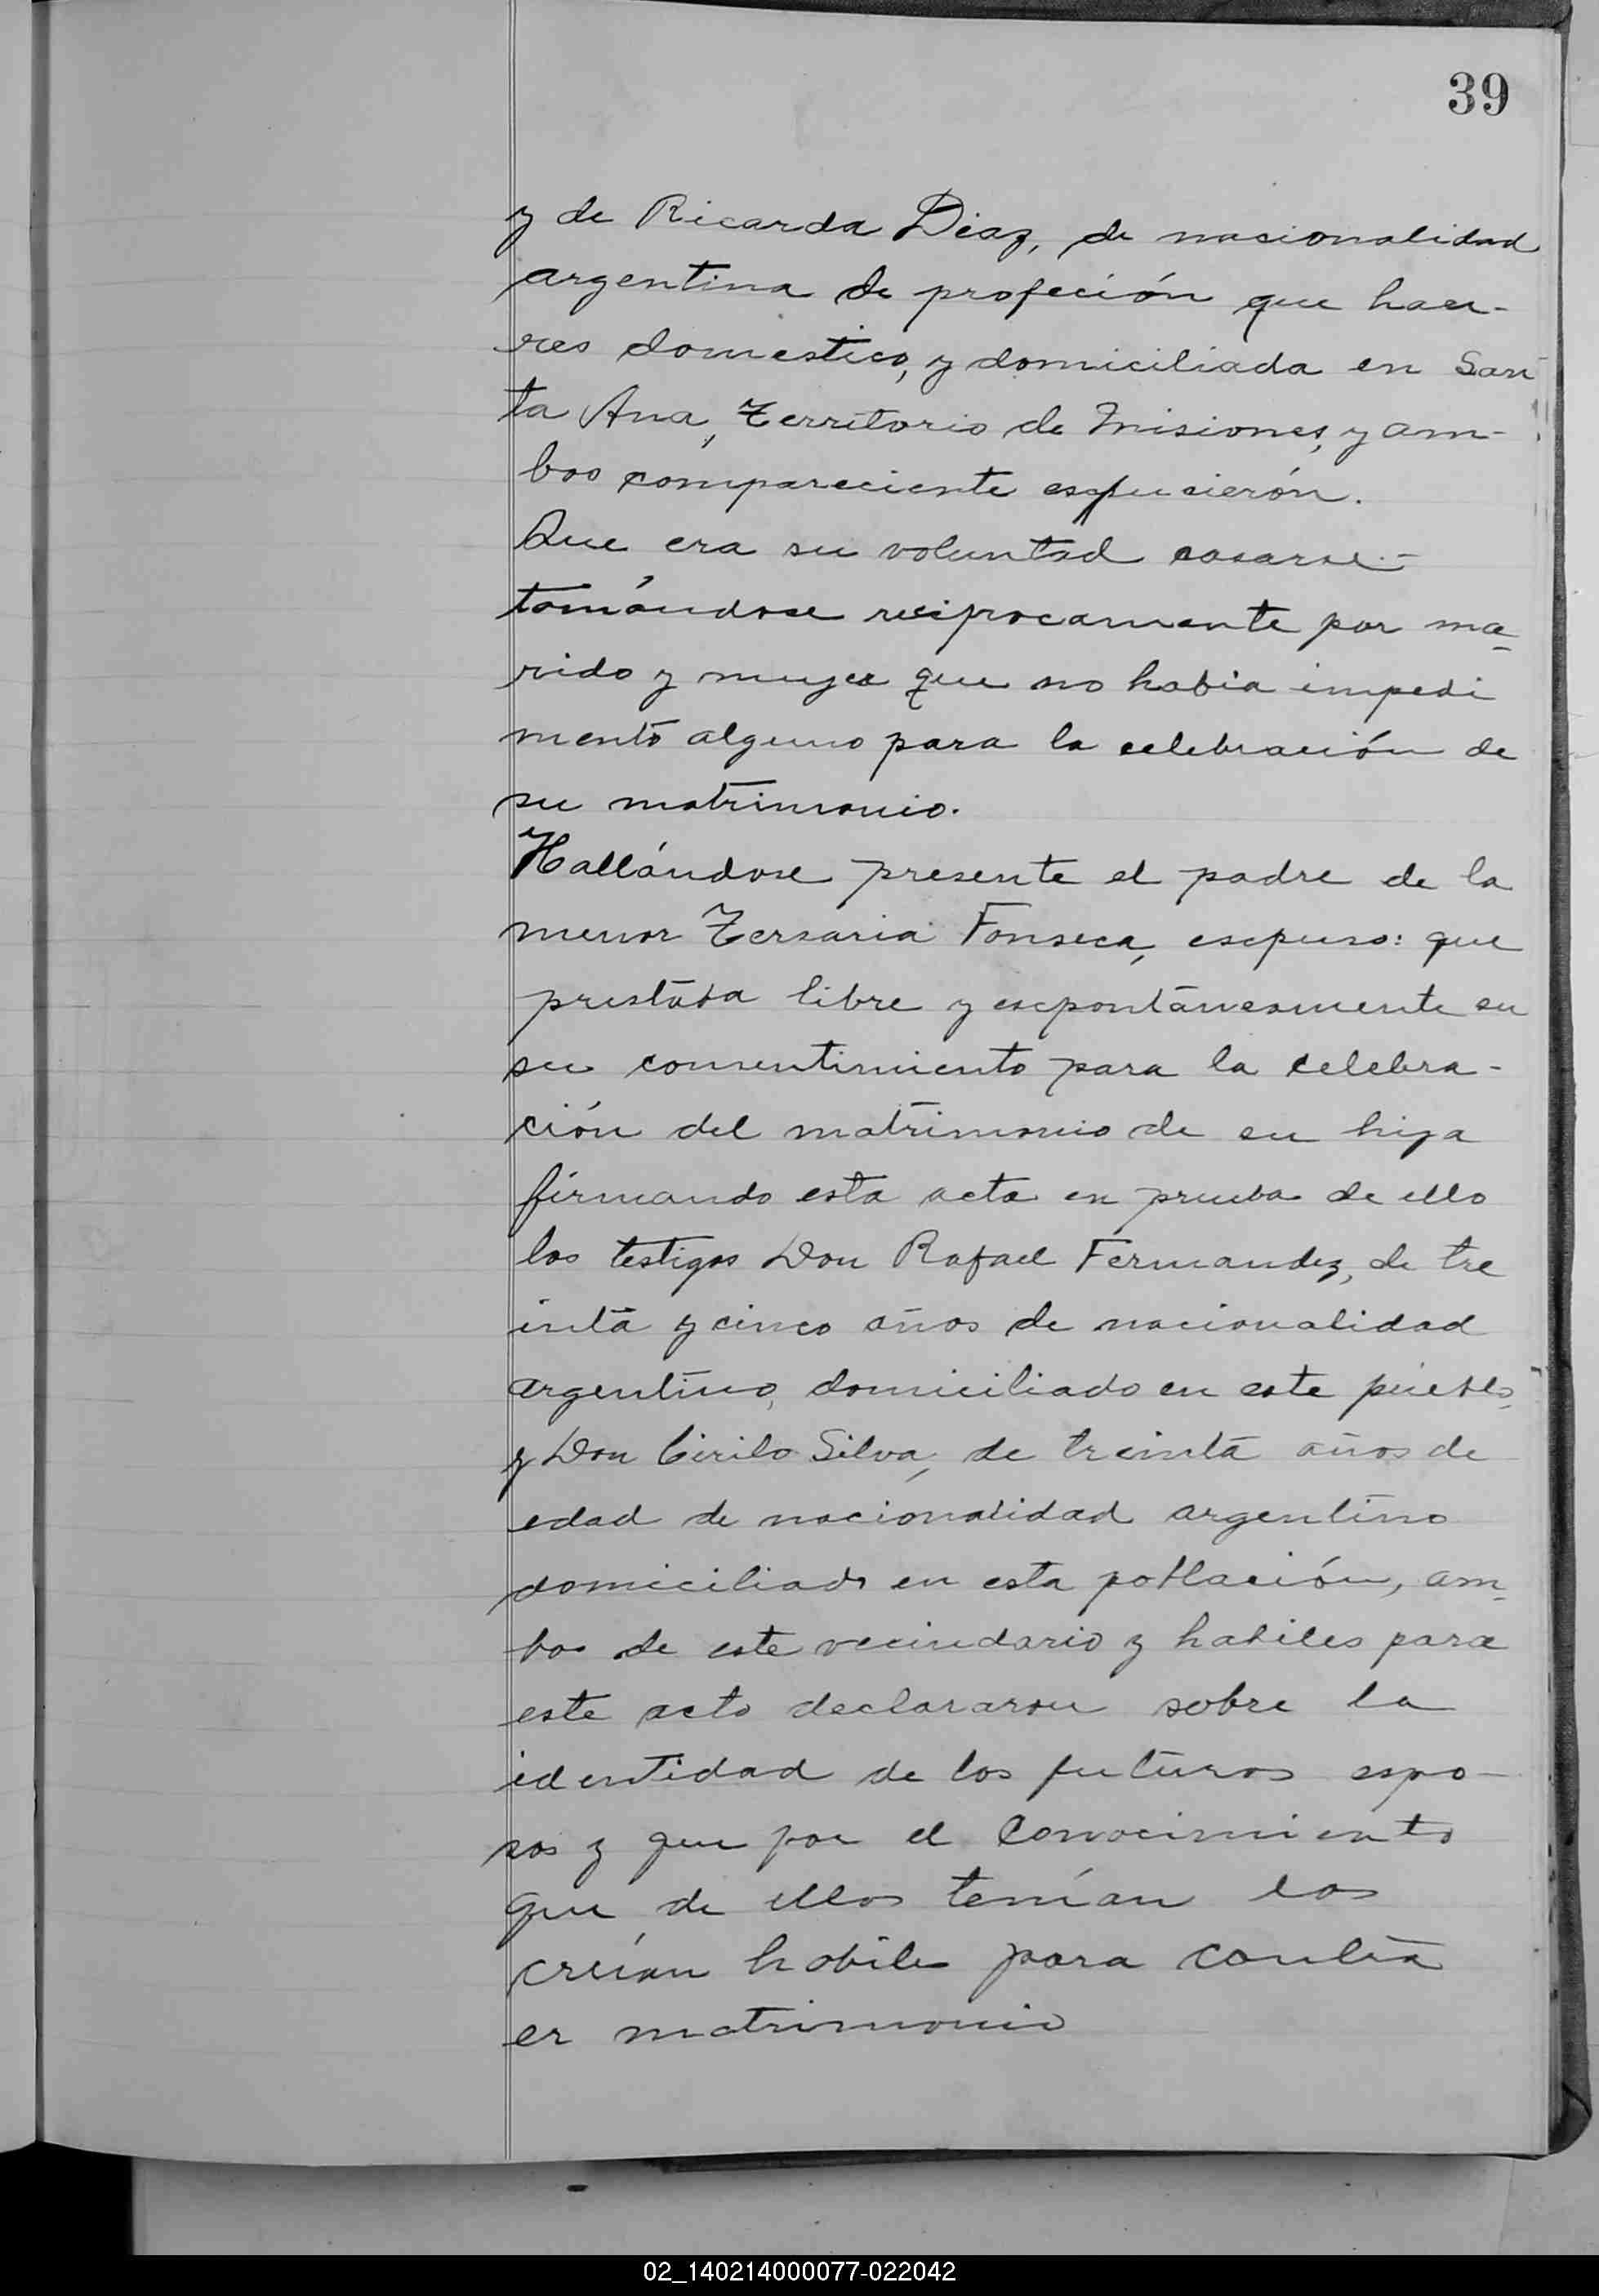 39
y de Ricarda Diaz, de nacionalidad
argentina de profeción que hace-
res domestico, y domiciliada en San
ta Ana, Territorio de Misiones, y am-
bos compareciente espusierón.
Que era su voluntad casarse.-
tomándose reciprocamente por ma-
rido y mujer que no habia impedi
mento alguno para la celebración de
su matrimonio.
Hallándose presente el padre de la
menor Fonseca, espuso: que
prestaba libre y espontáneamente su
su consentimiento para la celebra-
ción del matrimonio de su hija
firmando esta acta en prueba de ello
los testigos Don Rafael Fernandez, de tre
inta y cinco años de nacionalidad
argentino, domiciliado en este pueblo,
y Don Cirilo Silva, de treinta años de
edad de nacionalidad argentino
domiciliado en esta población, am-
bos de este vecindario y habiles para
este acto declararon sobre la
identidad de los futuros espo-
sos y que por el Conocimiento
que de ellos tenían los
creían habiles para contra
er matrimonio
02_140214000077-022042